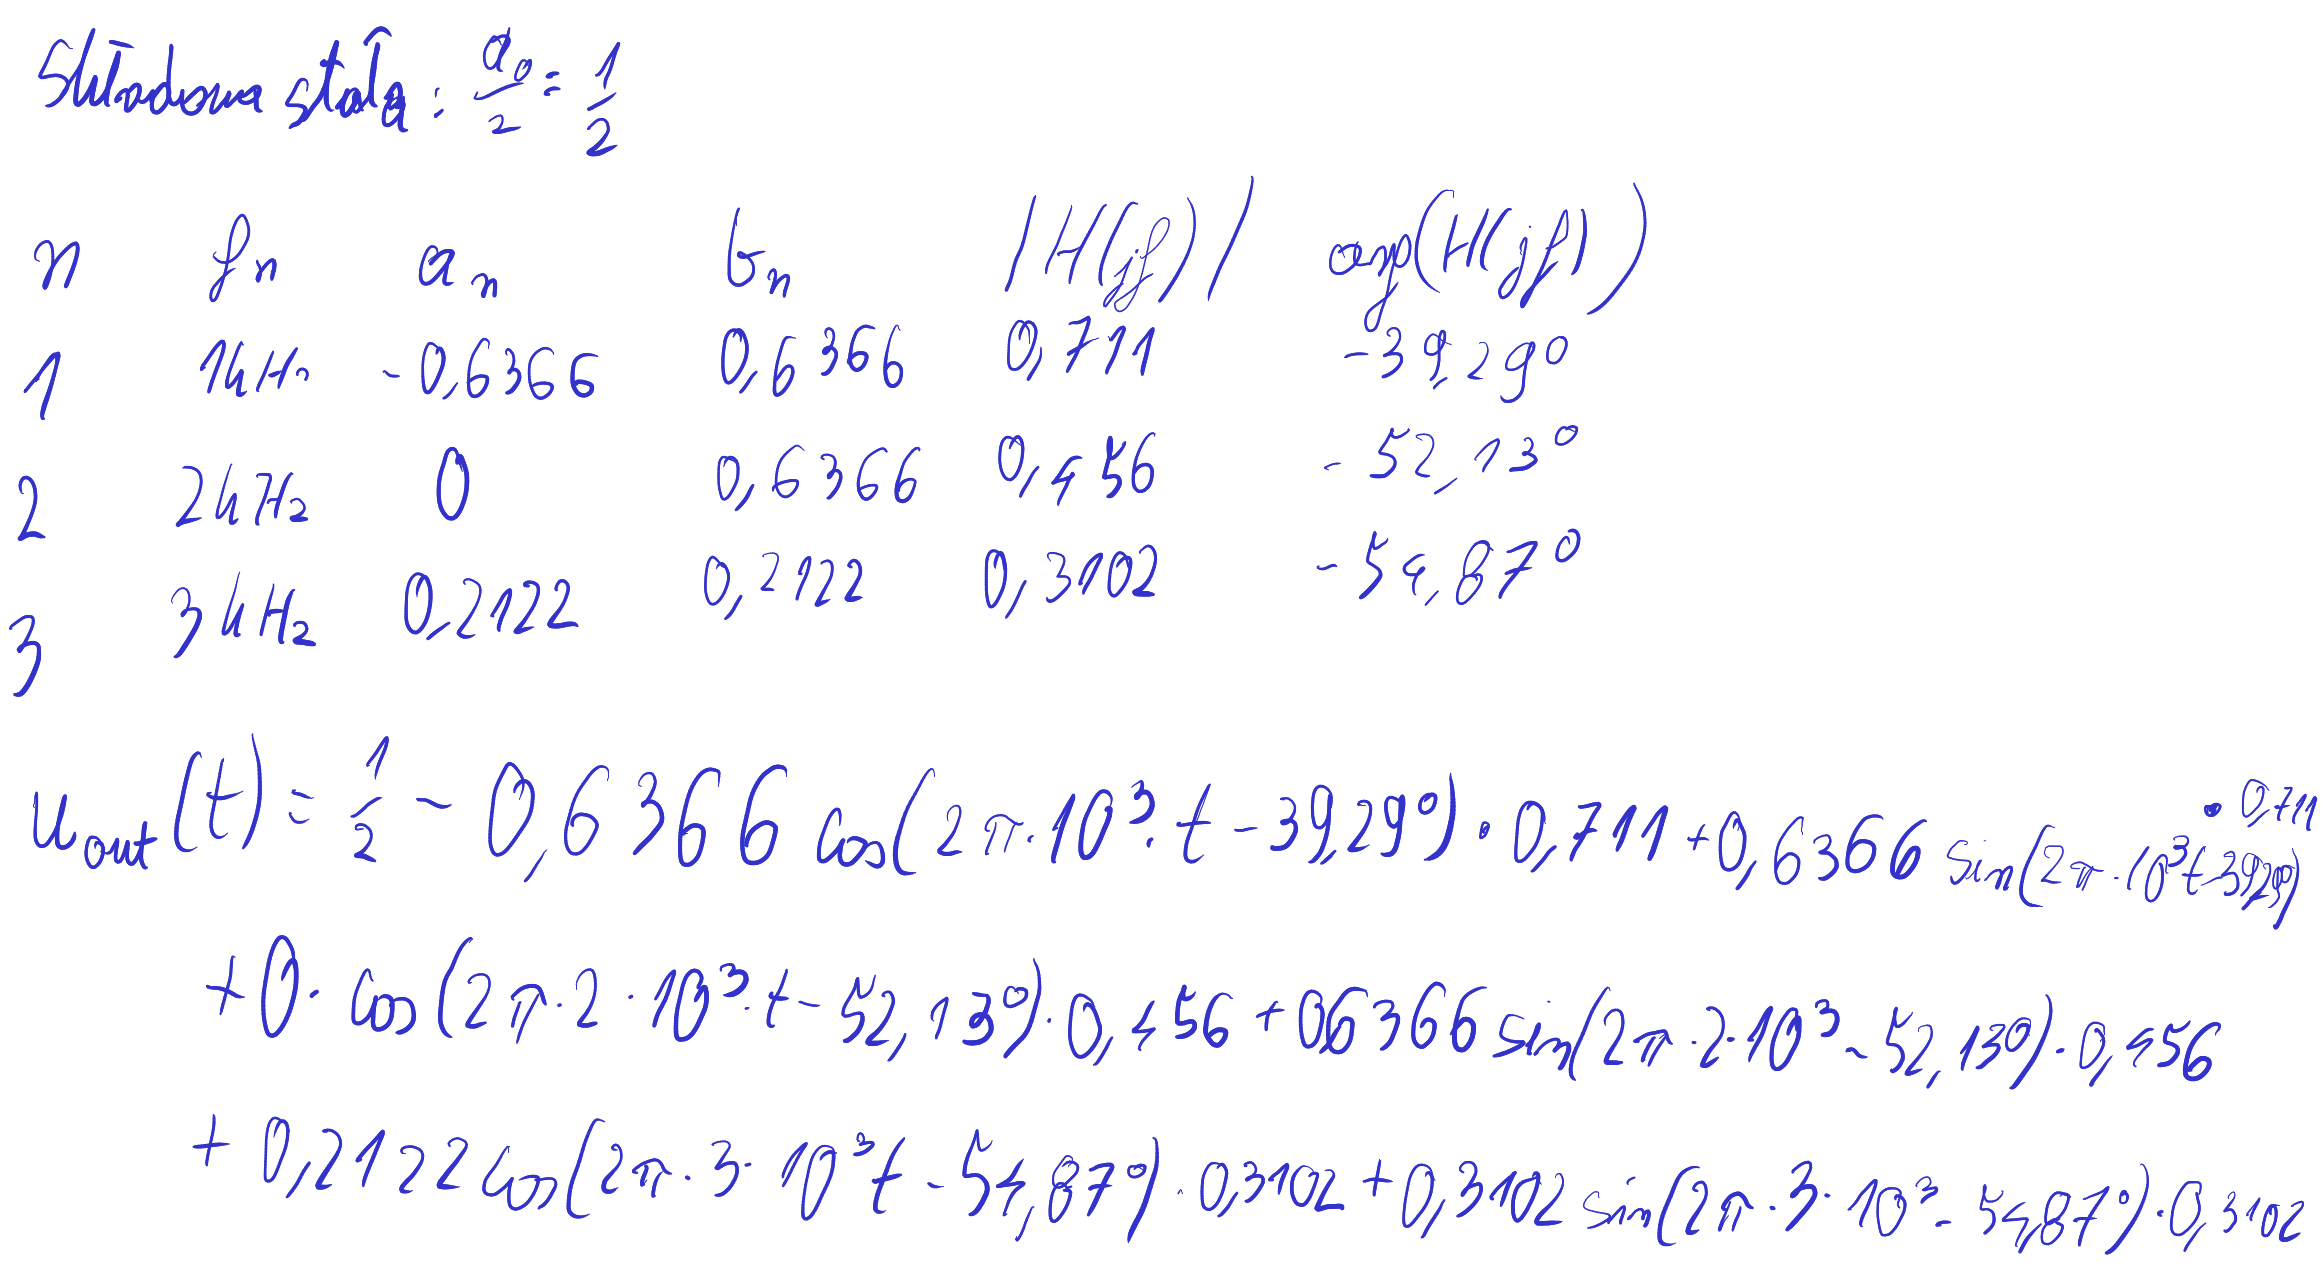 Składowa stała: a₀/2 = 1/2
n fn an bn |H(jf)| arg(H(jf))
1 1kHz -0,6366 0,6366 0,711 -39,29°
2 2kHz 0 0,6366 0,456 -52,13°
3 3kHz 0,2122 0,2122 0,3102 -54,87°
u_out(t) = 1/2 - 0,6366 cos(2π·10³·t - 39,29°)·0,711 + 0,6366 sin(2π·10³t - 39,29°)·0,711
+ 0·cos(2π·2·10³·t - 52,13°)·0,456 + 0,6366 sin(2π·2·10³ - 52,13°)·0,456
+ 0,2122 cos(2π·3·10³t - 54,87°)·0,3102 + 0,3102 sin(2π·3·10³ - 54,87°)·0,3102